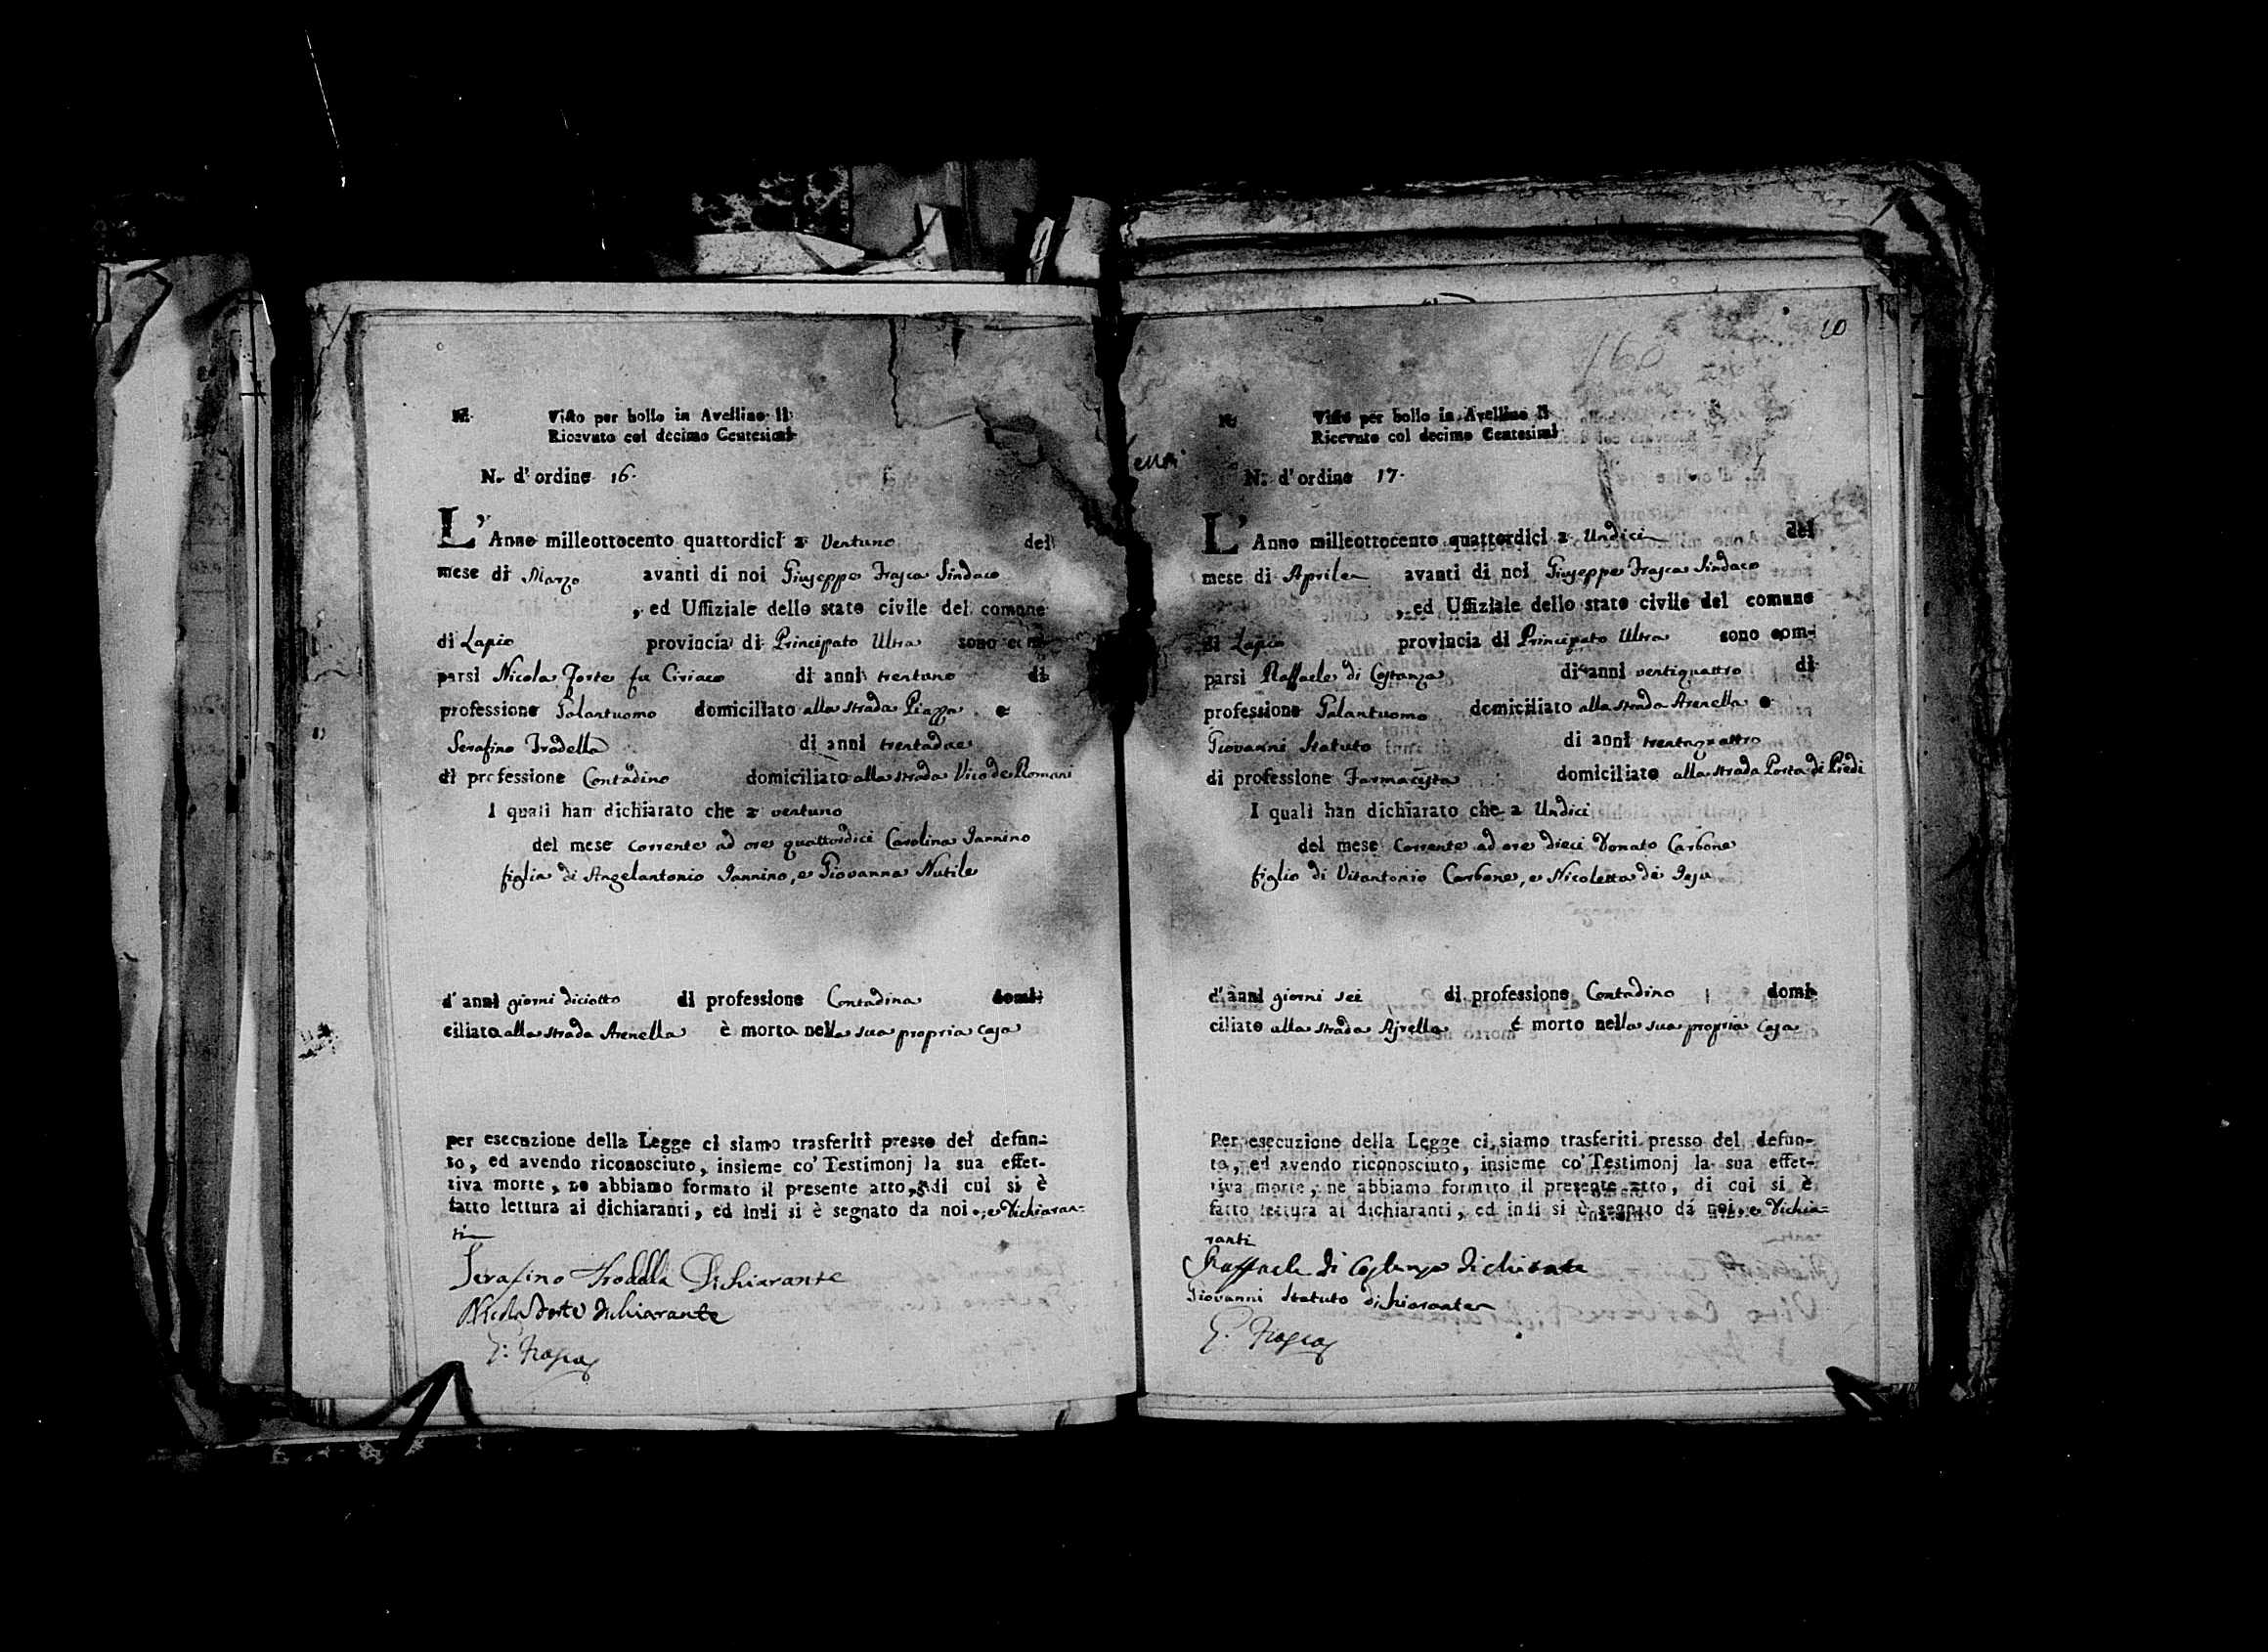 N. Visto per bollo in Avellino li
Ricevuto col decimo Centesimi
N. d'ordine 16.
L'Anno milleottocento quattordici a Ventuno del
mese di Marzo avanti di noi Giuseppe Frasca Sindaco
, ed Uffiziale dello stato civile del comune
di Lapio provincia di Principato Ultra sono com-
parsi Nicola Forte fu Ciriaco di anni trentuno di
professione Galantuomo domiciliato alla strada Piazza e
Serafino Trodella di anni trentadue
di professione Contadino domiciliato alla strada Vico de Romani
I quali han dichiarato che a ventuno
del mese corrente ad ore quattordici Carolina Iannino
figlia di Angelantonio Iannino, e Giovanna Nutile
d'anni giorni diciotto di professione Contadina domi-
ciliato alla strada Arenella è morto nella sua propria casa
per esecuzione della Legge ci siamo trasferiti presso del defun-
to, ed avendo riconosciuto, insieme co' Testimonj la sua effet-
tiva morte, ne abbiamo formato il presente atto, di cui si è
fatto lettura ai dichiaranti, ed indi si è segnato da noi, e Dichiaran=
ti
Serafino Trodella Dichiarante
Nicola Forte dichiarante
G. Frasca
10
160
N. Visto per bollo in Avellino li
Ricevuto col decimo Centesimi
N. d'ordine 17.
L'Anno milleottocento quattordici a Undici del
mese di Aprile avanti di noi Giuseppe Frasca Sindaco
, ed Uffiziale dello stato civile del comune
di Lapio provincia di Principato Ultra sono com-
parsi Raffaele di Costanza di anni ventiquattro di
professione Galantuomo domiciliato alla strada Arenella e
Giovanni Statuto di anni trentaquattro
di professione Farmacista domiciliato alla strada Porta di Piedi
I quali han dichiarato che a Undici
del mese corrente ad ore dieci Donato Carbone
figlio di Vitantonio Carbone, e Nicoletta de Jesu
d'anni giorni sei di professione Contadino domi-
ciliato alla strada Ajrella è morto nella sua propria casa
Per esecuzione della Legge ci siamo trasferiti presso del defun-
to, ed avendo riconosciuto, insieme co' Testimonj la sua effet-
tiva morte, ne abbiamo formato il presente atto, di cui si è
fatto lettura ai dichiaranti, ed indi si è segnato da noi, e Dichia=
ranti
Raffaele di Costanza dichiarante
Giovanni Statuto dichiarante
G. Frasca